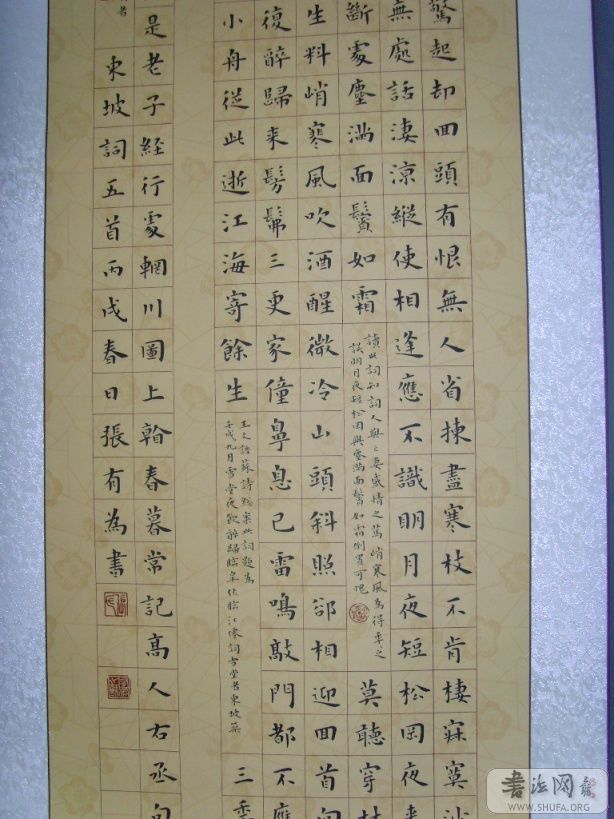 驚起却回頭有恨無人省揀盡寒枝不肯棲寂寞沙
無處話淒涼縱使相逢應不識明月夜短松岡夜来
斷處塵滿面鬢如霜
讀此詞知詞人與亡妻感情之篤峭寒風為得平之
誤明月夜短松岡與塵滿面鬢如霜倒置可愧
莫聽穿林
生料峭寒風吹酒醒微冷山頭斜照郤相迎回首向
復醉歸来髣髴三更家僮鼻息已雷鳴敲門都不應
小舟從此逝江海寄餘生
王文誥蘇詩總案此詞題為
壬戌九月雪堂夜飲醉歸臨皋作臨江仙詞雪堂為東坡築
三
是老子經行處輞川圖上翰春暮常記高人右丞句
者
東坡詞五首丙戌春日張有為書
書法网
WWW.SHUFA.ORG